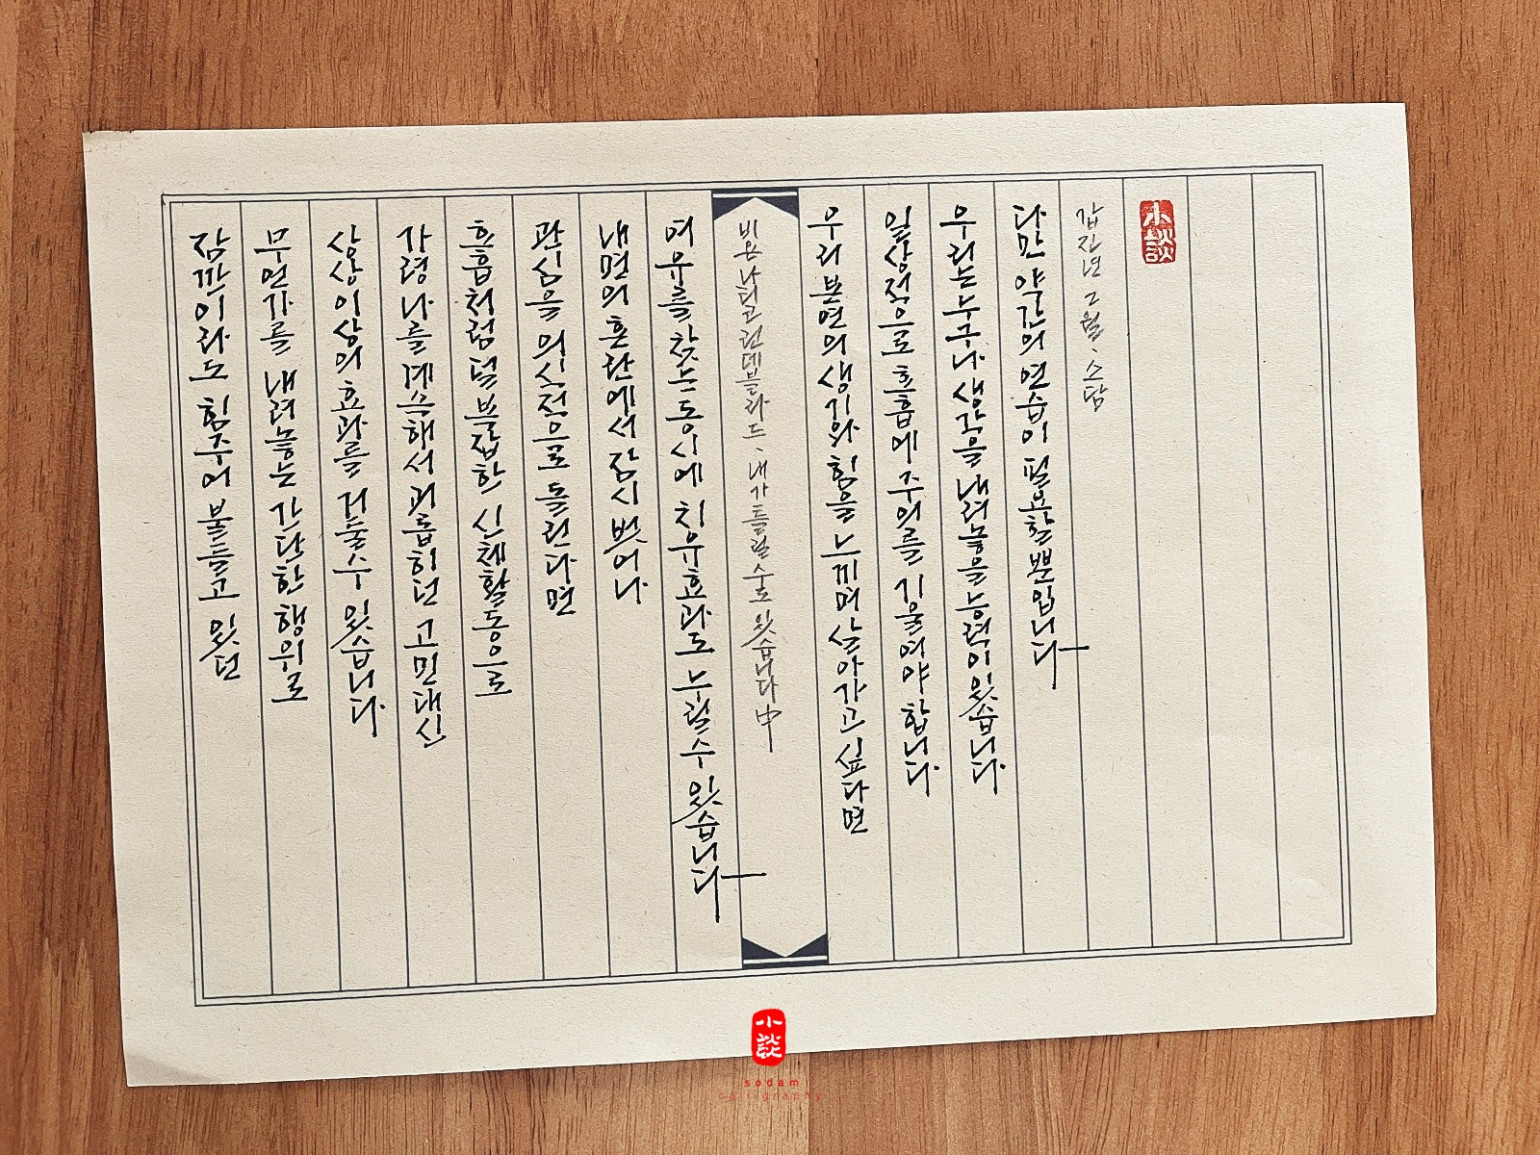 잠깐이라도 힘주어 붙들고 있던
무언가를 내려놓는 간단한 행위로
상상 이상의 효과를 거둘 수 있습니다
가령 나를 계속해서 괴롭히던 고민 대신
호흡처럼 덜 복잡한 신체 활동으로
관심을 의식적으로 돌린다면
내면의 혼란에서 잠시 벗어나
여유를 찾는 동시에 치유 효과도 누릴 수 있습니다
비욘 나티코 린데블라드、내가 틀릴 수도 있습니다 中
우리 본연의 생기와 힘을 느끼며 살아가고 싶다면
일상적으로 호흡에 주의를 기울여야 합니다
우리는 누구나 생각을 내려놓을 능력이 있습니다
다만 약간의 연습이 필요할 뿐입니다
갑진년 2월、소담
小談
小談
sodam
calligraphy